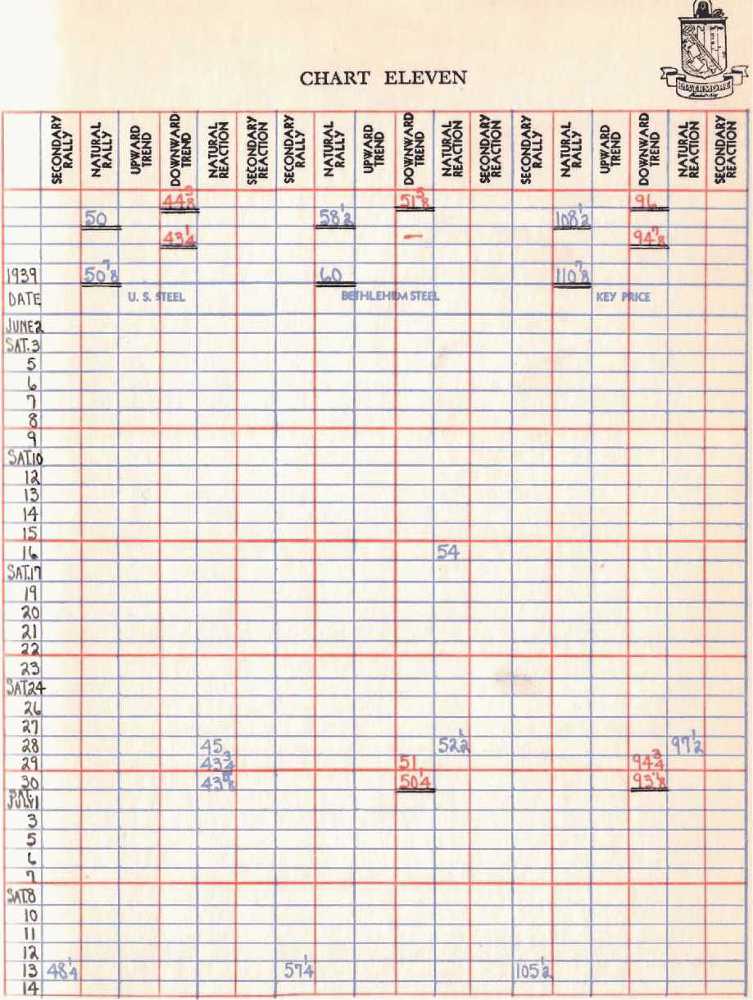 LIVERMORE
CHART ELEVEN
SECONDARY RALLY NATURAL RALLY UPWARD TREND DOWNWARD TREND NATURAL REACTION SECONDARY REACTION SECONDARY RALLY NATURAL RALLY UPWARD TREND DOWNWARD TREND NATURAL REACTION SECONDARY REACTION SECONDARY RALLY NATURAL RALLY UPWARD TREND DOWNWARD TREND NATURAL REACTION SECONDARY REACTION
44⅝ 51⅝ 96
50 58½ 108½
43¼ — 94⅞
1939 50⅞ 60 110⅞
DATE U. S. STEEL BETHLEHEM STEEL KEY PRICE
JUNE 2
SAT. 3
5
6
7
8
9
SAT.10
12
13
14
15
16 54
SAT.17
19
20
21
22
23
SAT.24
26
27
28 45 52½ 97½
29 43¾ 51 94¾
30 43⅝ 50¼ 93⅞
JULY 1
3
5
6
7
SAT.8
10
11
12
13 48¼ 57¼ 105½
14